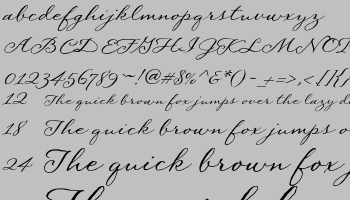 abcdefghijklmnopqrstuvwxyz
ABCDEFGHIJKLMNOP
0123456789~!@#$%^&*()-_+=>,<[]{
12 The quick brown fox jumps over the lazy d
18 The quick brown fox jumps o
24 The quick brown fox j